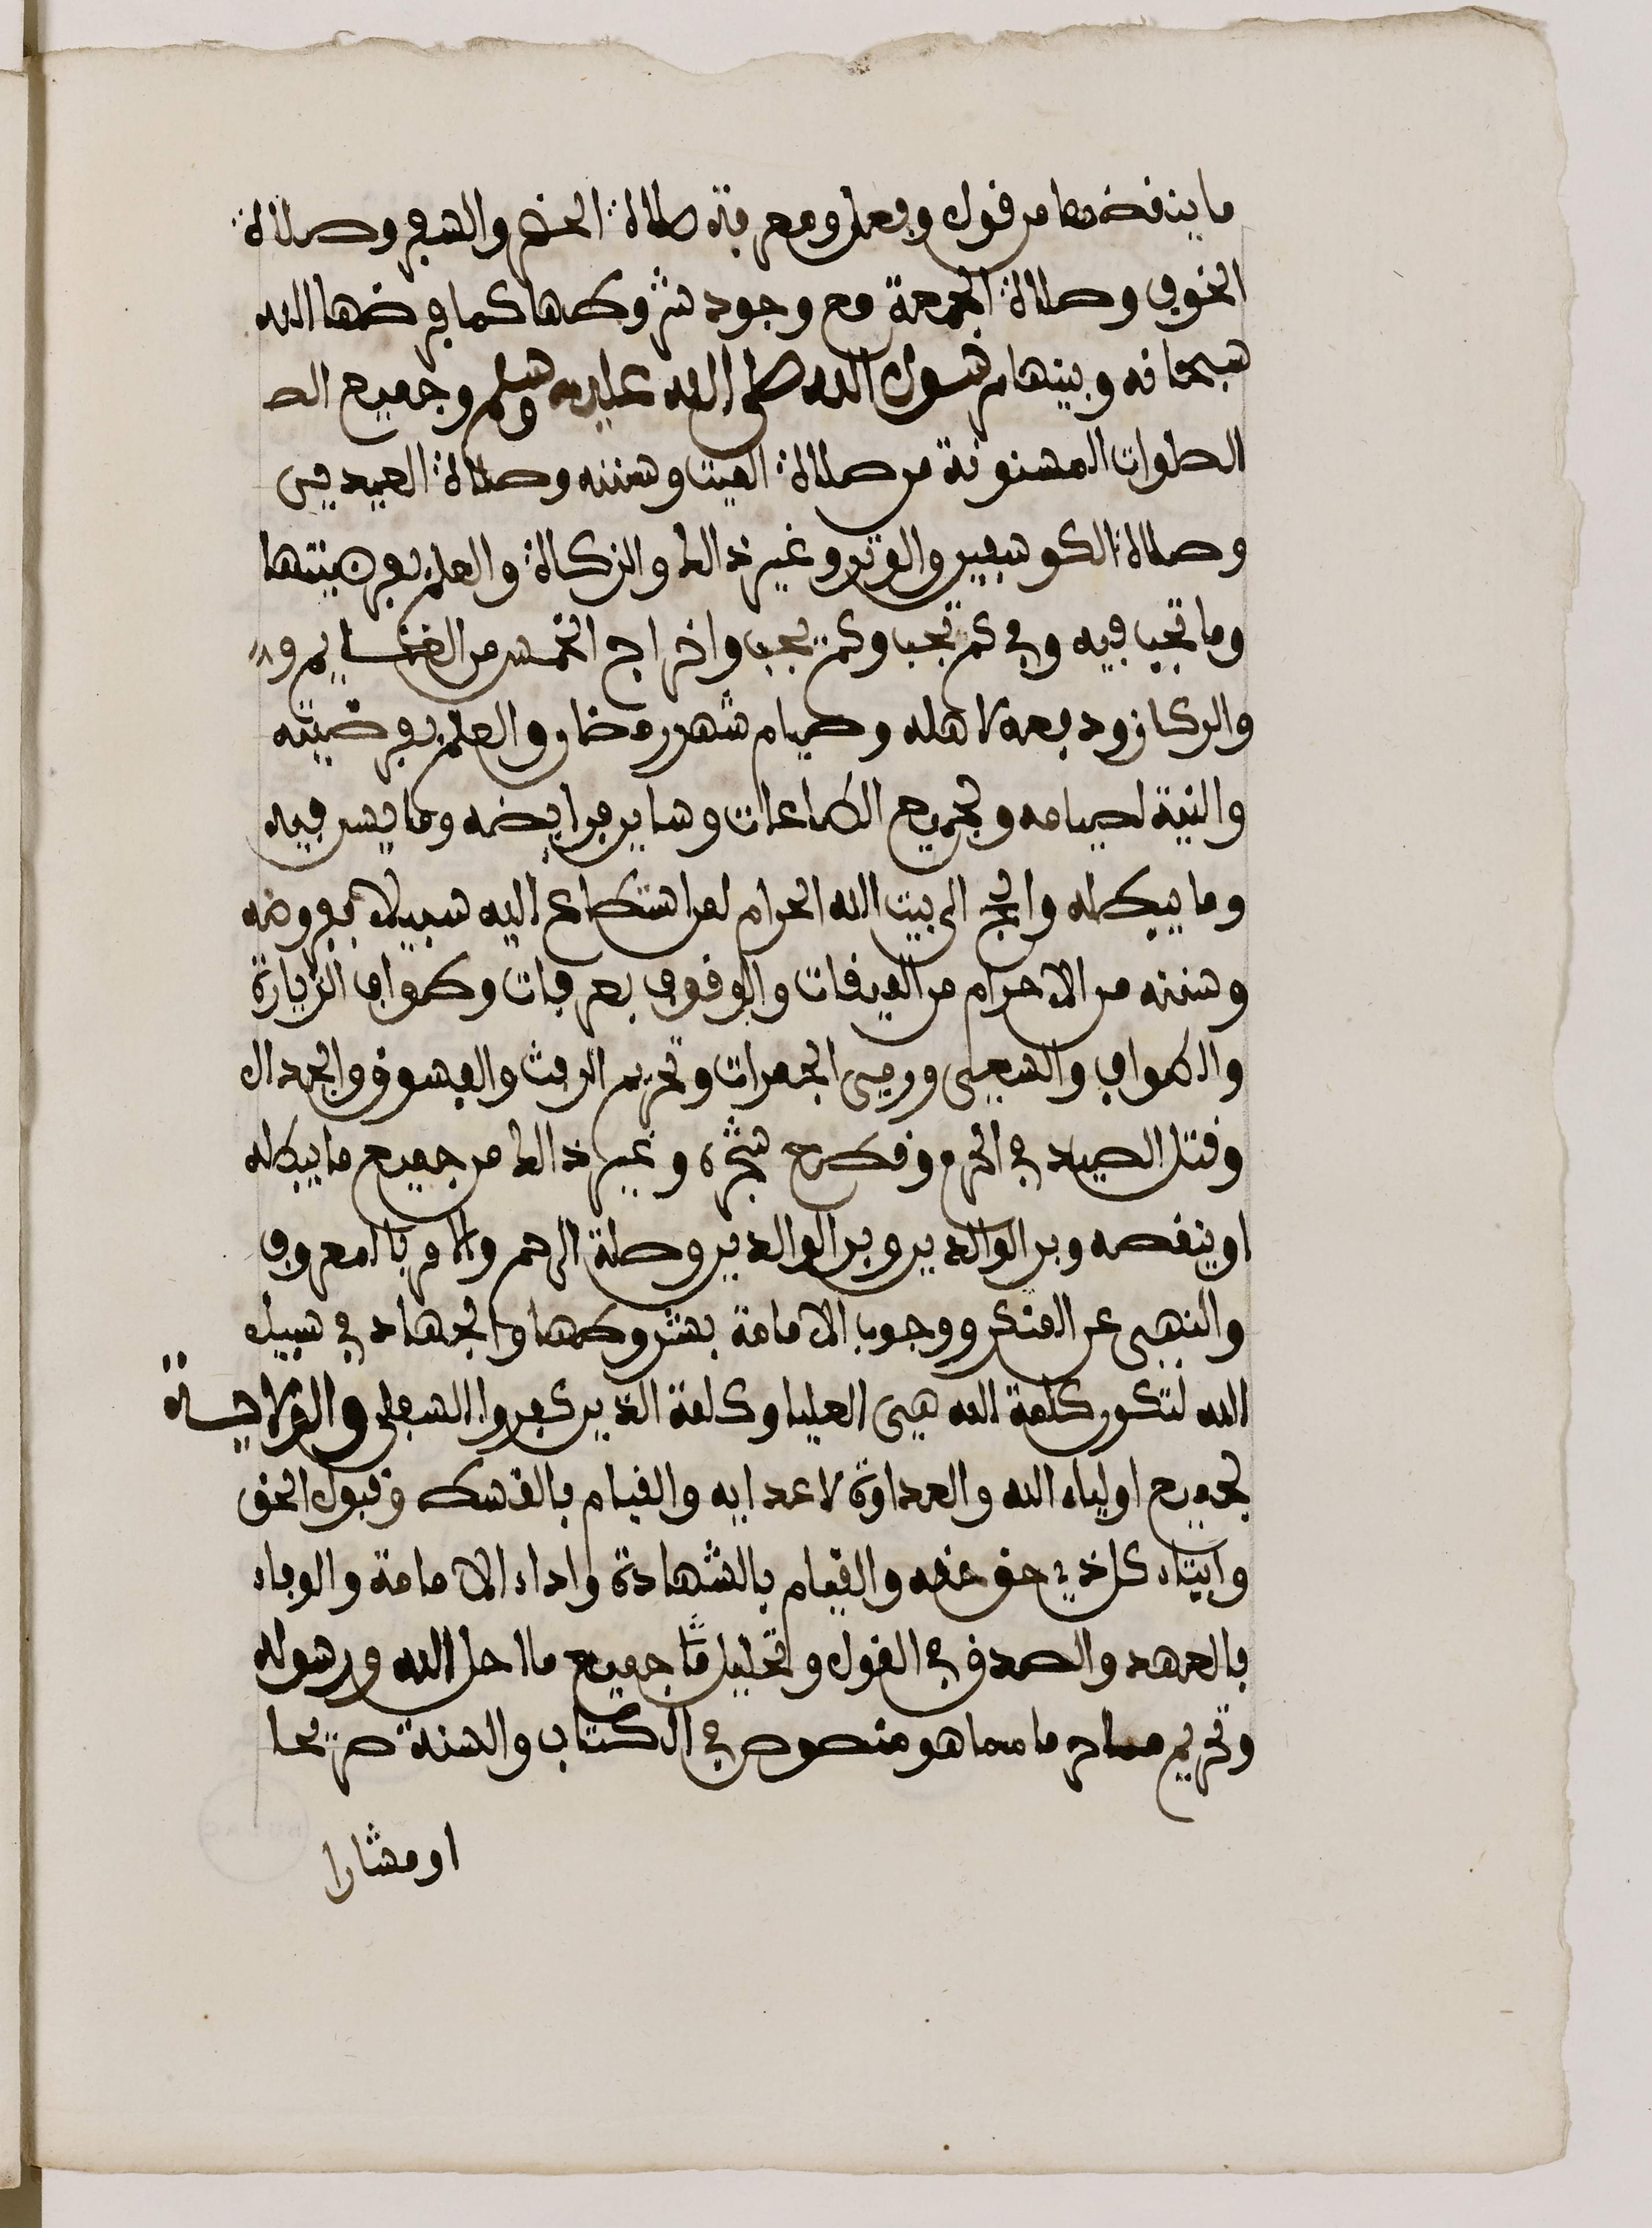 ما ينقضها من قول وفعل ومعرفة صلاة الحضر والسفر وصلاة
الخوف وصلاة الجمعة مع وجود شروطها كما فرضها الله
سبحانه وبينها رسول الله صلى الله عليه وسلم وجميع الص
الصلوات المسنونة من صلاة الميت وسننه وصلاة العيدين
وصلاة الكوسفين والوتر وغير ذالك والزكاة والعلم بفرضيتها
وما تجب فيه وفي كم تجب وكم يجب واخراج الخمس من الغنايم و
والركاز ودفعه لاهله وصيام شهر رمضان والعلم بفرضيته
والنية لصيامه ولجميع الطاعات وساير فرايضه وما يسن فيه
وما يبطله والحج الى بيت الله الحرام لمن استطاع اليه سبيلا بفروضه
وسننه من الاحرام من الميقات والوقوف بعرفات وطواف الزيارة
والطواف والسعي ورمي الجمرات وتحريم الرفث والفسوق والجدال
وقتل الصيد في الحرم وقطع شجره وغير ذالك من جميع ما يبطله
او ينقصه وبر الوالدين وبر الوالدين وصلة الرحم والامر بالمعروف
والنهي عن المنكر ووجوب الامامة بشروطها والجهاد في سبيل
الله لتكون كلمة الله هي العليا وكلمة الذين كفروا السفلى والولاية
لجميع اولياء الله والعداوة لاعدايه والقيام بالقسط وقبول الحق
وايتاء كل ذي حق حقه والقيام بالشهادة واداء الامامة والوفاء
بالعهد والصدق في القول وتحليل ما جميع ما احل الله ورسوله
وتحريم ما حرما مما هو منصوص في الكتاب والسنة صريحا
او مشارا